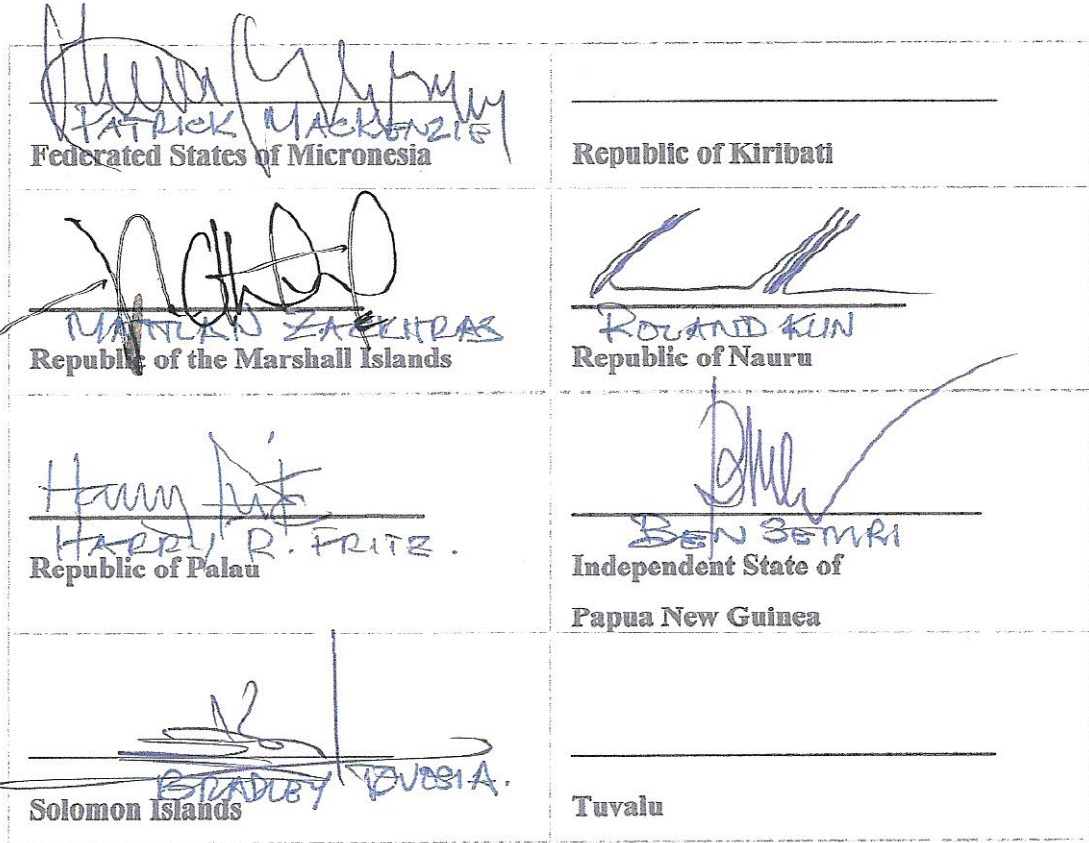 PATRICK MACKENZIE
Federated States of Micronesia
Republic of Kiribati
MATTLAN ZACKHRAS
Republic of the Marshall Islands
ROLAND KUN
Republic of Nauru
Harry Fritz
HARRY R. FRITZ.
Republic of Palau
BEN SEMRI
Independent State of
Papua New Guinea
BRADLEY TOVOSIA.
Solomon Islands
Tuvalu